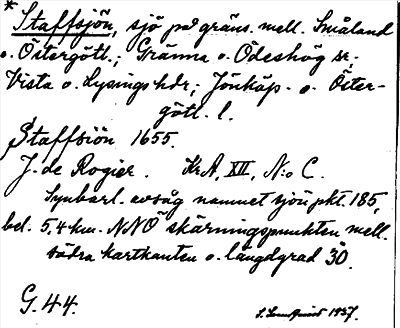 * Staffsjön, sjö på gräns. mell. Småland
o. Östergötl.; Gränna o. Ödeshög sr;
Vista o. Lysings hdr; Jönköp. o. Öster-
götl. l.
Staffsiön 1655.
J. de Rogier. Kr.A, XII, N:o C.
Synbarl. avsåg namnet sjön pkt. 185,
bel. 5,4 km. NNÖ skärningspunkten mell.
södra kartkanten o. längdgrad 30.
G. 44.
1937.